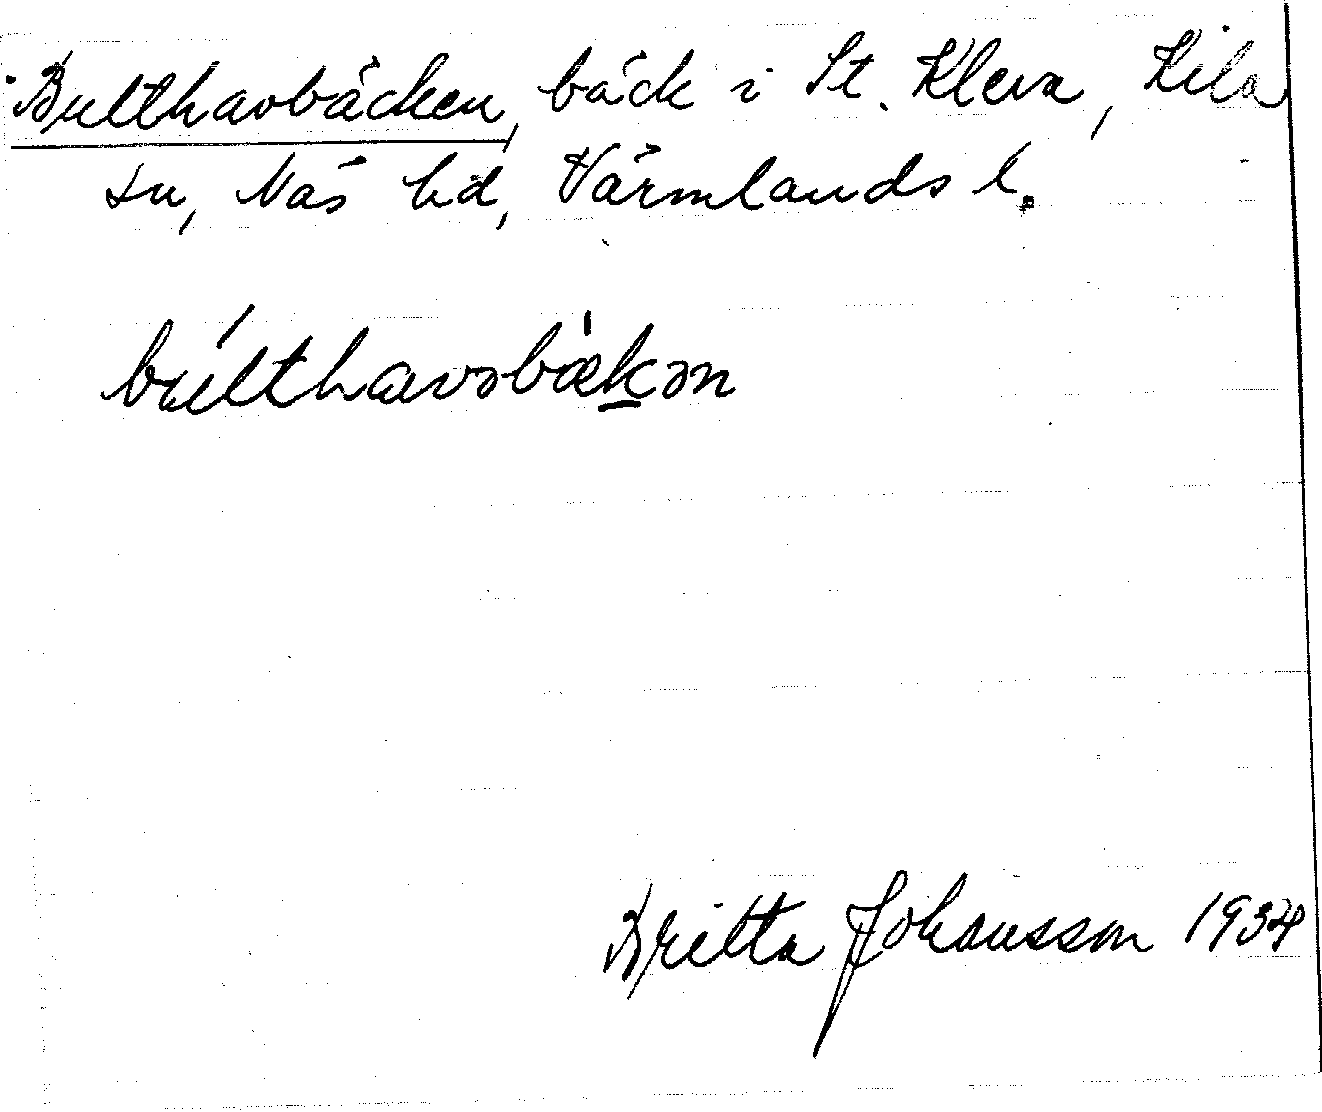 Bulthavbäcken, bäck i St. Kleva, Kila
sn, Näs hd, Värmlands l.
búlthavsbæ̀kən
Britta Johansson 1934